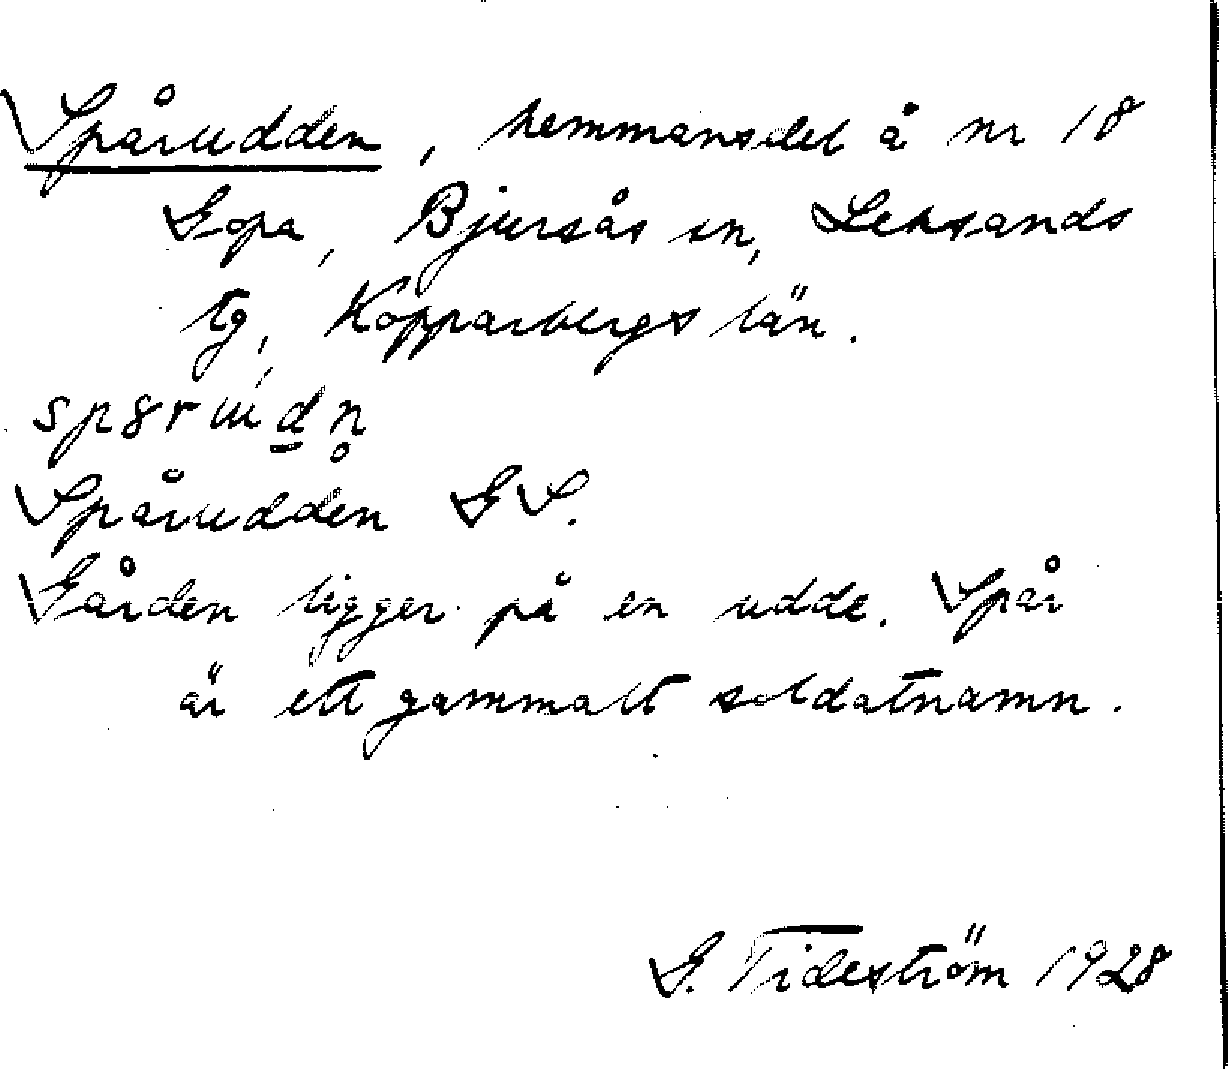 Spårudden, hemmansdel å nr 18
Gopa, Bjursås sn, Leksands
tg, Kopparbergs län.
Spårudden GS.
Gården ligger på en udde. Spår
är ett gammalt soldatnamn.
G. Tideström 1928